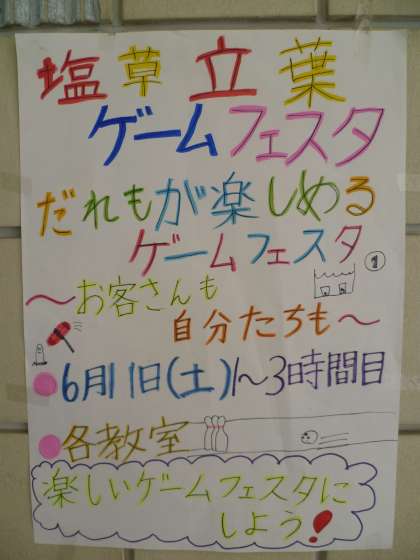 塩草立葉
ゲームフェスタ
だれもが楽しめる
ゲームフェスタ
①
〜お客さんも
自分たちも〜
●6月1日(土)1〜3時間目
●各教室
楽しいゲームフェスタに
しよう!